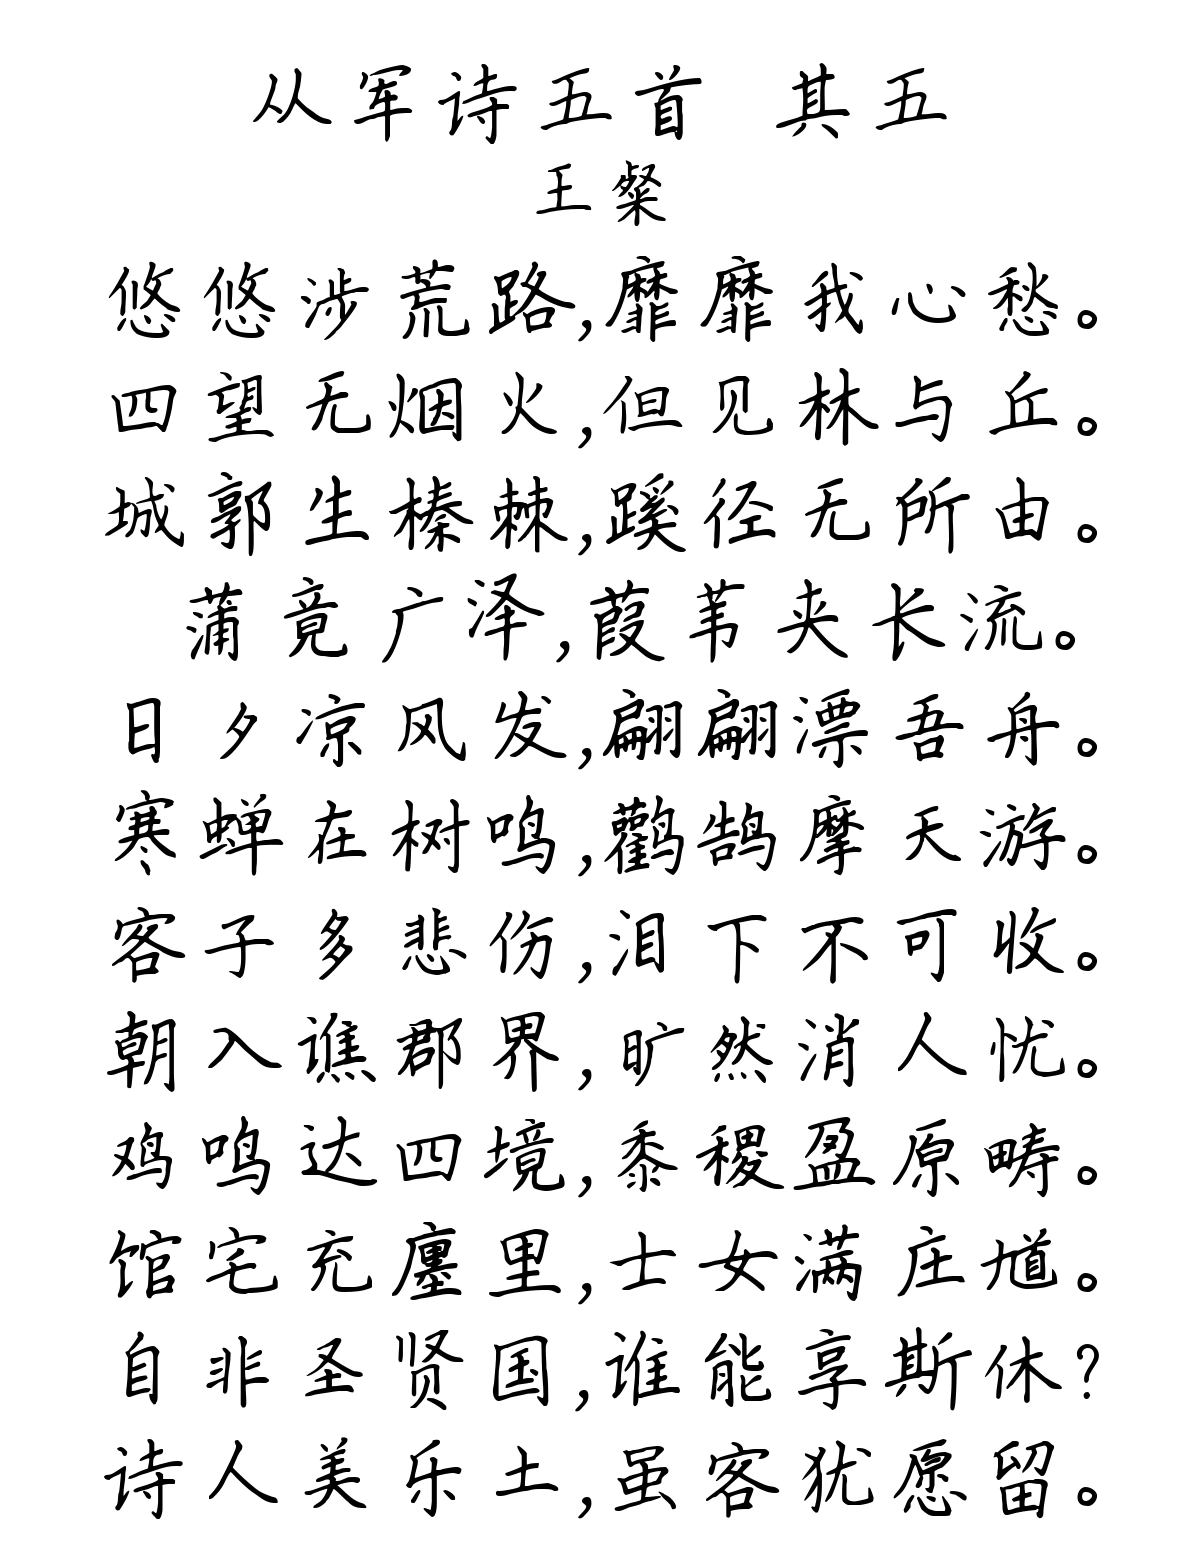 从军诗五首 其五
王粲
悠悠涉荒路,靡靡我心愁。
四望无烟火,但见林与丘。
城郭生榛棘,蹊径无所由。
蒲竟广泽,葭苇夹长流。
日夕凉风发,翩翩漂吾舟。
寒蝉在树鸣,鹳鹄摩天游。
客子多悲伤,泪下不可收。
朝入谯郡界,旷然消人忧。
鸡鸣达四境,黍稷盈原畴。
馆宅充廛里,士女满庄馗。
自非圣贤国,谁能享斯休?
诗人美乐土,虽客犹愿留。